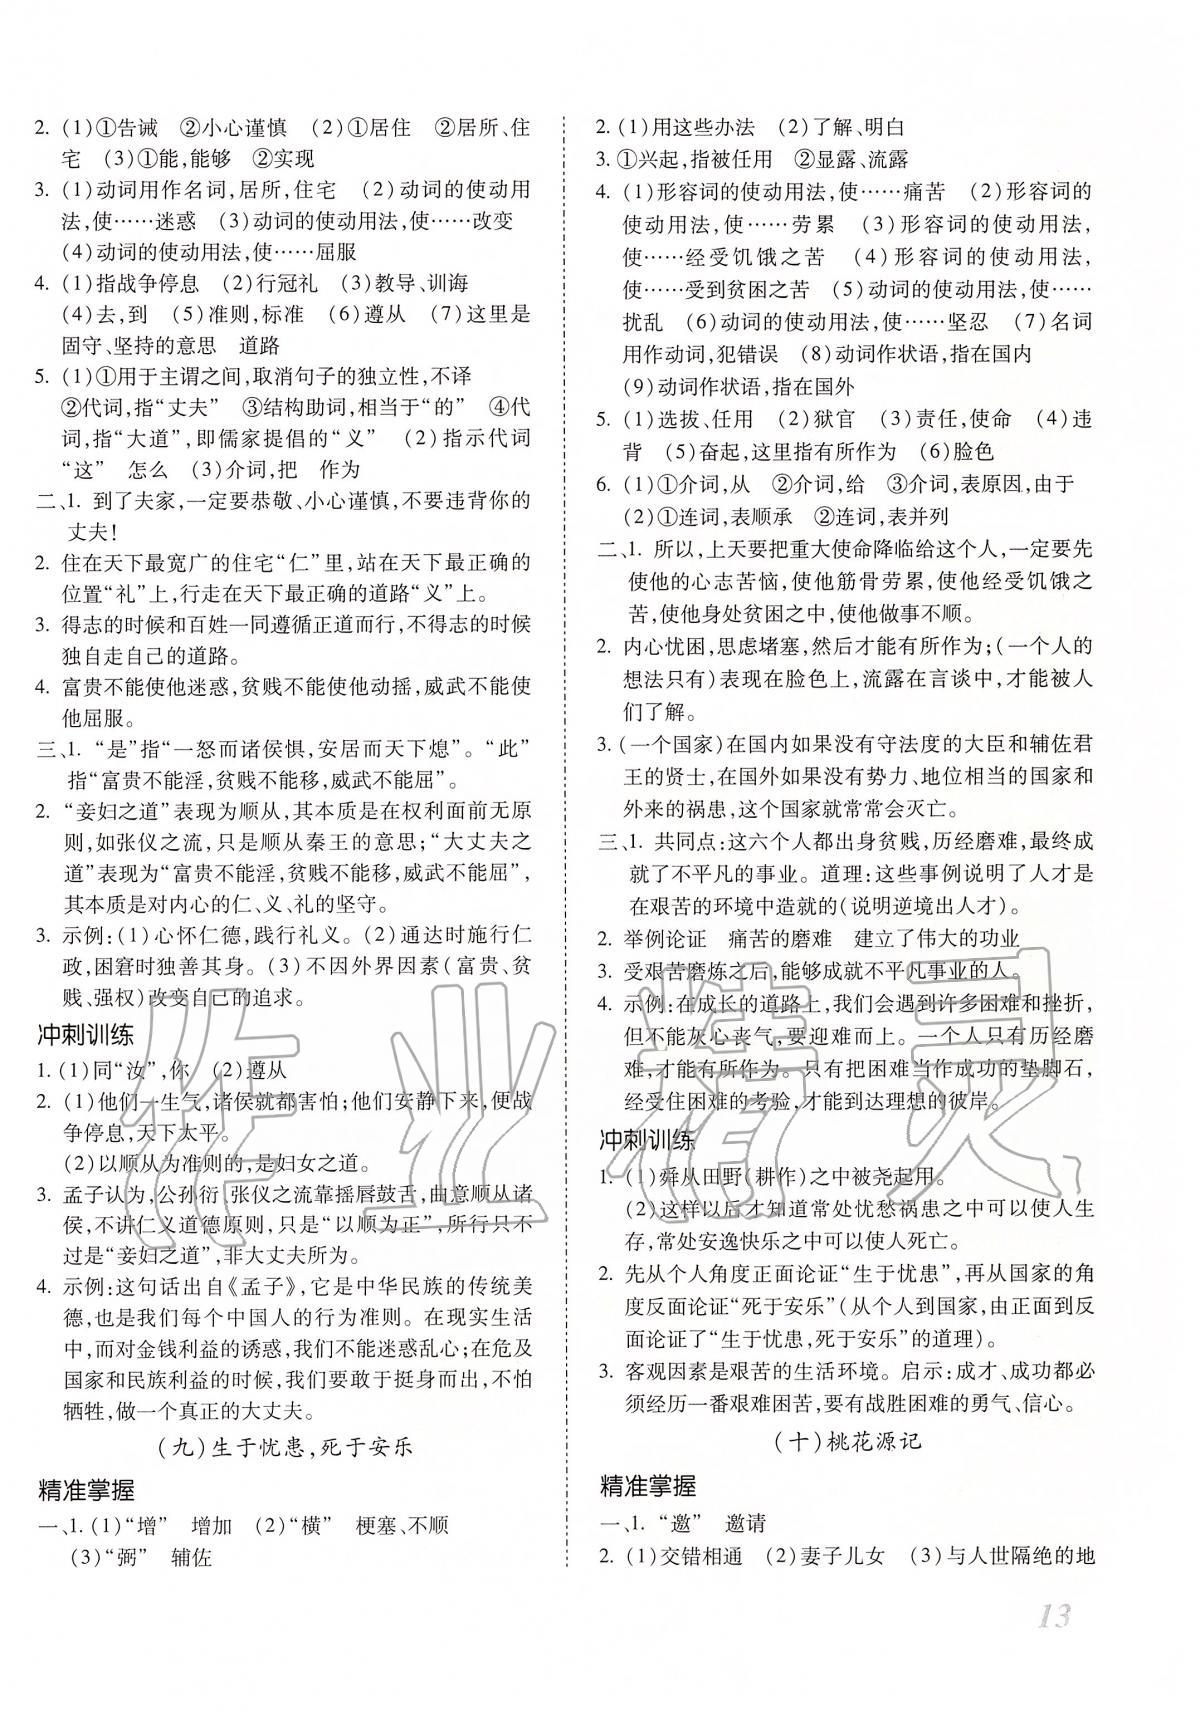 2. (1)①告诫　②小心谨慎　(2)①居住　②居所、住
宅　(3)①能,能够　②实现
3. (1)动词用作名词,居所,住宅　(2)动词的使动用
法,使……迷惑　(3)动词的使动用法,使……改变
(4)动词的使动用法,使……屈服
4. (1)指战争停息　(2)行冠礼　(3)教导、训诲
(4)去,到　(5)准则,标准　(6)遵从　(7)这里是
固守、坚持的意思　道路
5. (1)①用于主谓之间,取消句子的独立性,不译
②代词,指“丈夫”　③结构助词,相当于“的”　④代
词,指“大道”,即儒家提倡的“义”　(2)指示代词
“这”　怎么　(3)介词,把　作为
二、1. 到了夫家,一定要恭敬、小心谨慎,不要违背你的
丈夫!
2. 住在天下最宽广的住宅“仁”里,站在天下最正确的
位置“礼”上,行走在天下最正确的道路“义”上。
3. 得志的时候和百姓一同遵循正道而行,不得志的时候
独自走自己的道路。
4. 富贵不能使他迷惑,贫贱不能使他动摇,威武不能使
他屈服。
三、1. “是”指“一怒而诸侯惧,安居而天下熄”。“此”
指“富贵不能淫,贫贱不能移,威武不能屈”。
2. “妾妇之道”表现为顺从,其本质是在权利面前无原
则,如张仪之流,只是顺从秦王的意思;“大丈夫之
道”表现为“富贵不能淫,贫贱不能移,威武不能屈”,
其本质是对内心的仁、义、礼的坚守。
3. 示例:(1)心怀仁德,践行礼义。(2)通达时施行仁
政,困窘时独善其身。(3)不因外界因素(富贵、贫
贱、强权)改变自己的追求。
冲刺训练
1. (1)同“汝”,你　(2)遵从
2. (1)他们一生气,诸侯就都害怕;他们安静下来,便战
争停息,天下太平。
(2)以顺从为准则的,是妇女之道。
3. 孟子认为,公孙衍、张仪之流靠摇唇鼓舌,曲意顺从诸
侯,不讲仁义道德原则,只是“以顺为正”,所行只不
过是“妾妇之道”,非大丈夫所为。
4. 示例:这句话出自《孟子》,它是中华民族的传统美
德,也是我们每个中国人的行为准则。在现实生活
中,而对金钱利益的诱惑,我们不能迷惑乱心;在危及
国家和民族利益的时候,我们要敢于挺身而出,不怕
牺牲,做一个真正的大丈夫。
(九)生于忧患,死于安乐
精准掌握
一、1. (1)“增”　增加　(2)“横”　梗塞、不顺
(3)“弼”　辅佐
2. (1)用这些办法　(2)了解、明白
3. ①兴起,指被任用　②显露、流露
4. (1)形容词的使动用法,使……痛苦　(2)形容词的
使动用法,使……劳累　(3)形容词的使动用法,
使……经受饥饿之苦　(4)形容词的使动用法,
使……受到贫困之苦　(5)动词的使动用法,使……
扰乱　(6)动词的使动用法,使……坚忍　(7)名词
用作动词,犯错误　(8)动词作状语,指在国内
(9)动词作状语,指在国外
5. (1)选拔、任用　(2)狱官　(3)责任,使命　(4)违
背　(5)奋起,这里指有所作为　(6)脸色
6. (1)①介词,从　②介词,给　③介词,表原因,由于
(2)①连词,表顺承　②连词,表并列
二、1. 所以,上天要把重大使命降临给这个人,一定要先
使他的心志苦恼,使他筋骨劳累,使他经受饥饿之
苦,使他身处贫困之中,使他做事不顺。
2. 内心忧困,思虑堵塞,然后才能有所作为;(一个人的
想法只有)表现在脸色上,流露在言谈中,才能被人
们了解。
3. (一个国家)在国内如果没有守法度的大臣和辅佐君
王的贤士,在国外如果没有势力、地位相当的国家和
外来的祸患,这个国家就常常会灭亡。
三、1. 共同点:这六个人都出身贫贱,历经磨难,最终成
就了不平凡的事业。道理:这些事例说明了人才是
在艰苦的环境中造就的(说明逆境出人才)。
2. 举例论证　痛苦的磨难　建立了伟大的功业
3. 受艰苦磨炼之后,能够成就不平凡事业的人。
4. 示例:在成长的道路上,我们会遇到许多困难和挫折,
但不能灰心丧气,要迎难而上。一个人只有历经磨
难,才能有所作为。只有把困难当作成功的垫脚石,
经受住困难的考验,才能到达理想的彼岸。
冲刺训练
1. (1)舜从田野(耕作)之中被尧起用。
(2)这样以后才知道常处忧愁祸患之中可以使人生
存,常处安逸快乐之中可以使人死亡。
2. 先从个人角度正面论证“生于忧患”,再从国家的角
度反面论证“死于安乐”(从个人到国家,由正面到反
面论证了“生于忧患,死于安乐”的道理)。
3. 客观因素是艰苦的生活环境。启示:成才、成功都必
须经历一番艰难困苦,要有战胜困难的勇气、信心。
(十)桃花源记
精准掌握
一、1. “邀”　邀请
2. (1)交错相通　(2)妻子儿女　(3)与人世隔绝的地
13
作业精灵